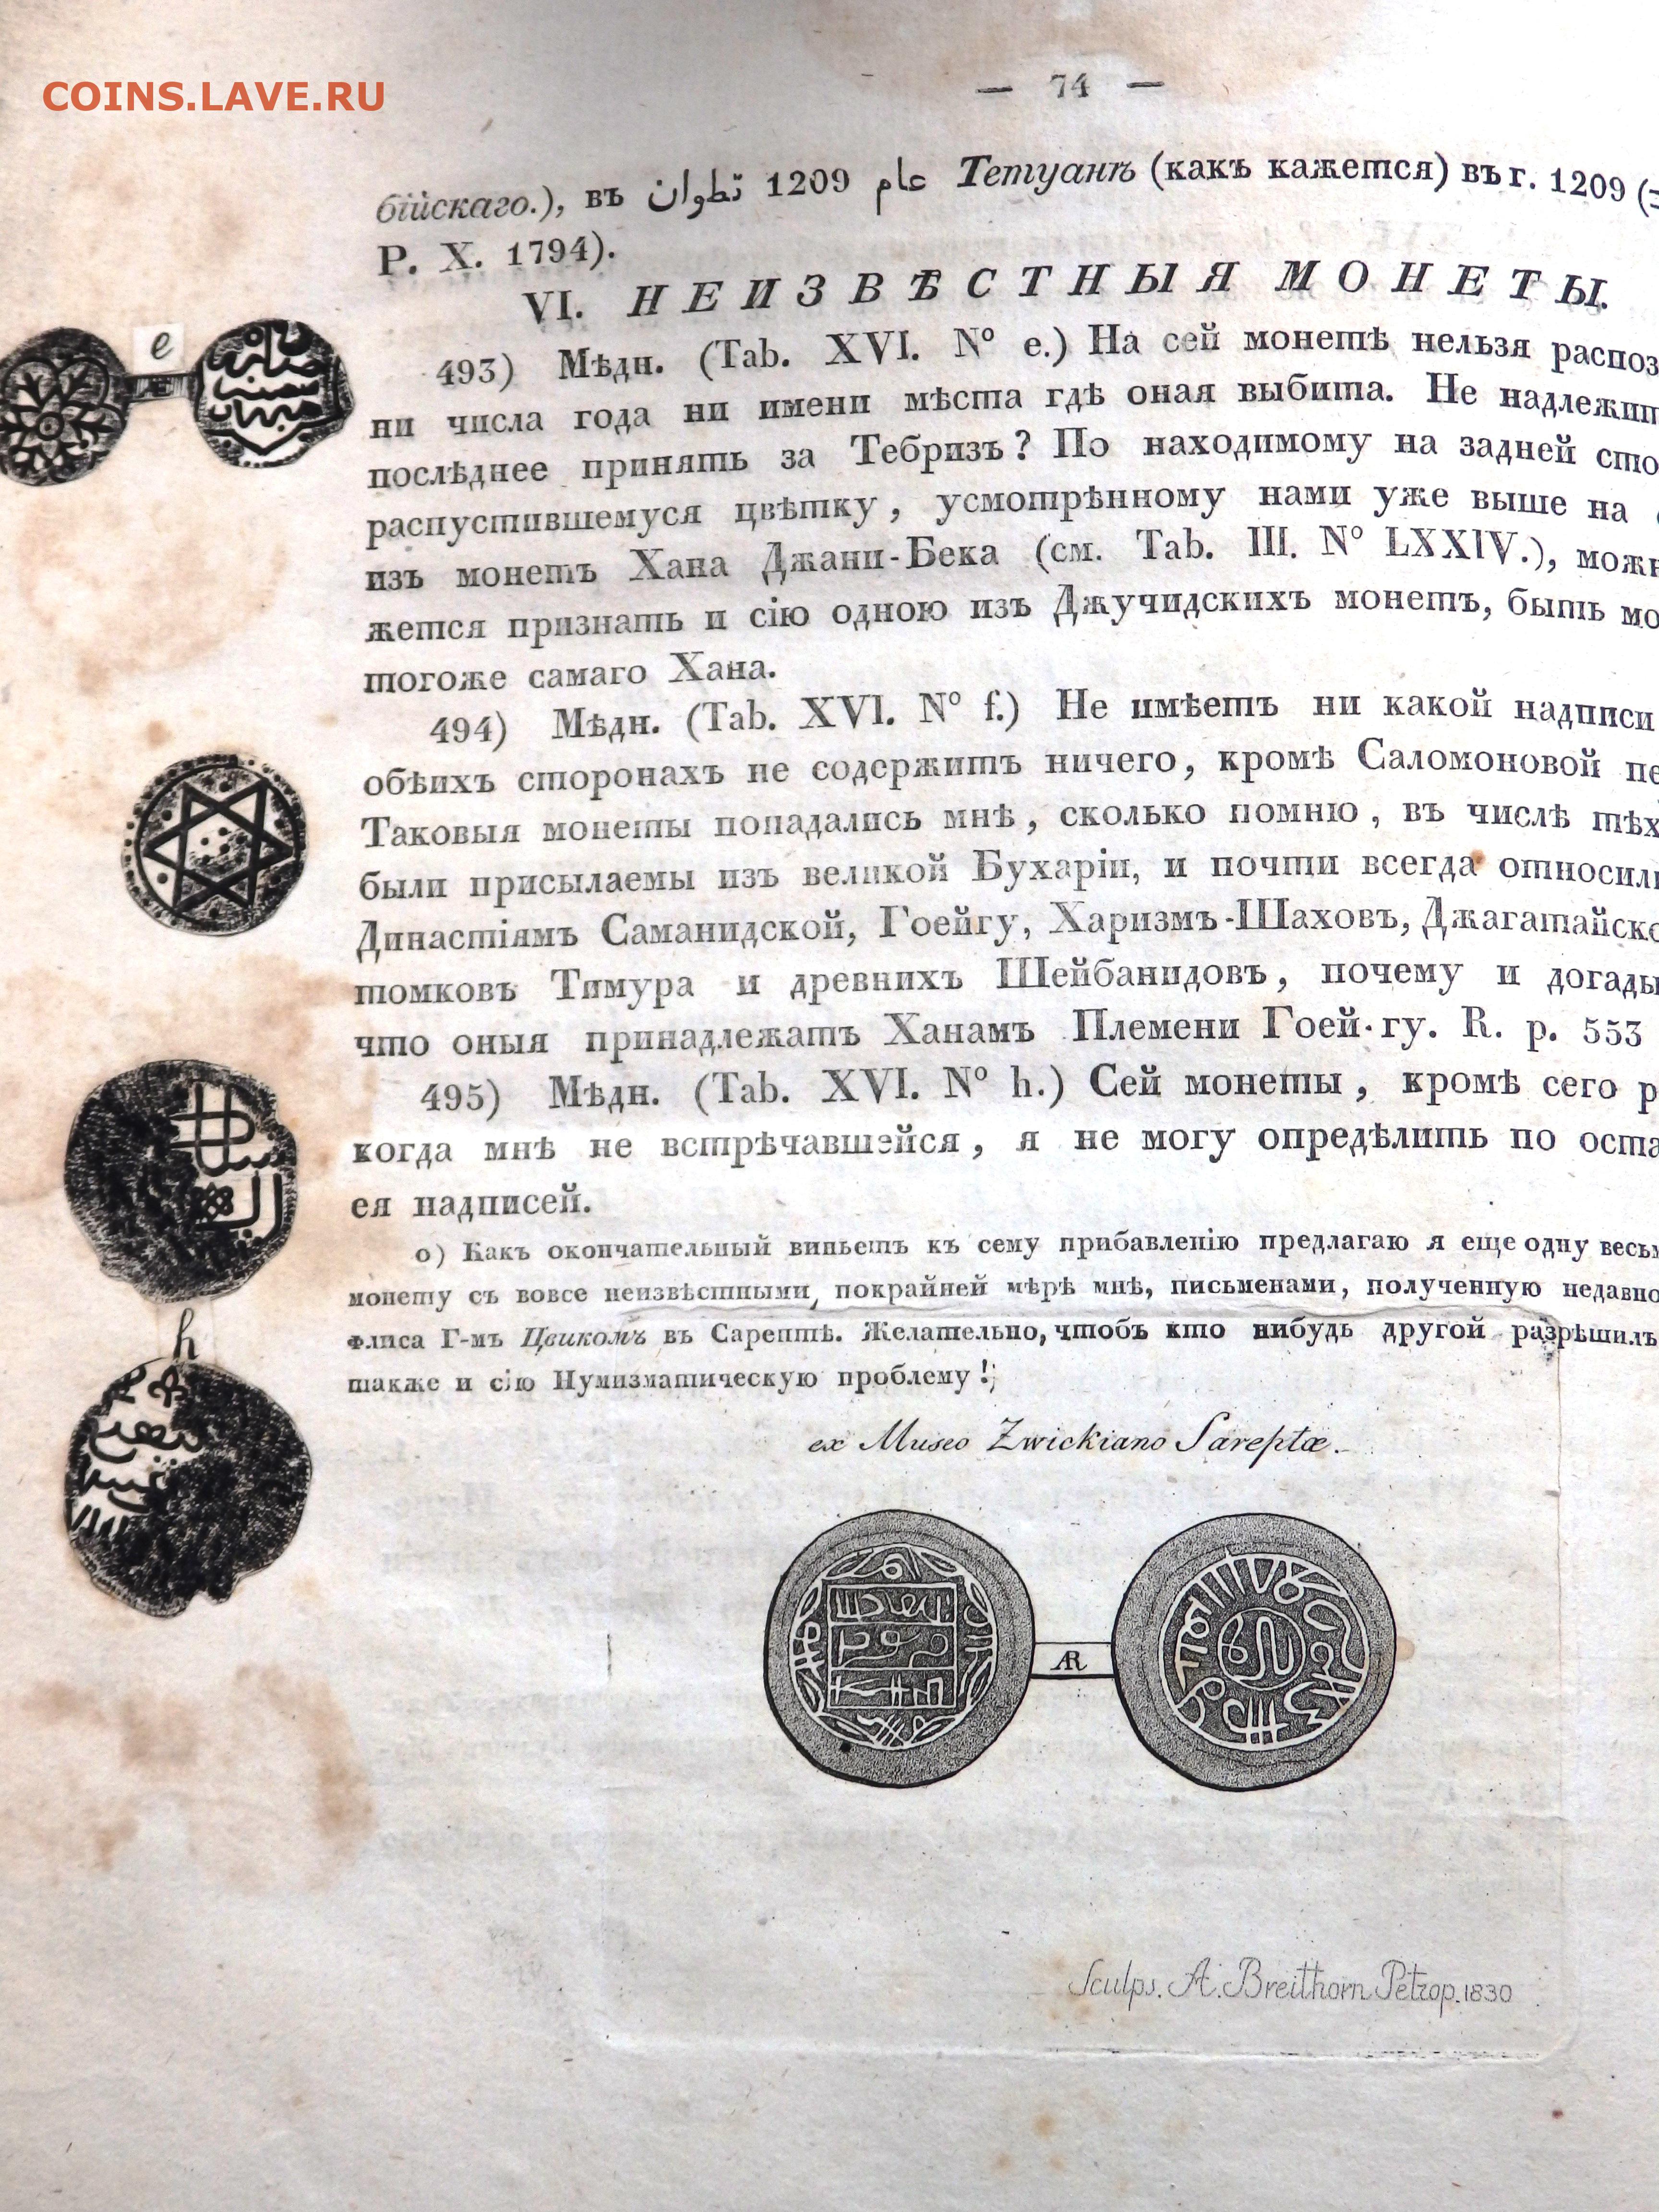 COINS.LAVE.RU
— 74 —
бійскаго.), въ تطوان 1209 عام Тетуанѣ (какъ кажется) въ г. 1209 (
Р. Х. 1794).
VI. НЕИЗВѢСТНЫЯ МОНЕТЫ.
493) Мѣдн. (Tab. XVI. N° e.) На сей монетѣ нельзя распоз
ни числа года ни имени мѣста гдѣ оная выбита. Не надлежит
послѣднее принять за Тебризъ? По находимому на задней сто
распустившемуся цвѣтку, усмотрѣнному нами уже выше на
изъ монетъ Хана Джани-Бека (см. Tab. III. N° LXXIV.), можн
жется признать и сію одною изъ Джучидскихъ монетъ, быть мо
тогоже самаго Хана.
494) Мѣдн. (Tab. XVI. N° f.) Не имѣетъ ни какой надписи
обѣихъ сторонахъ не содержитъ ничего, кромѣ Саломоновой пе
Таковыя монеты попадались мнѣ, сколько помню, въ числѣ тѣх
были присылаемы изъ великой Бухаріи, и почти всегда относили
Династіямъ Саманидской, Гоейгу, Харизмъ-Шаховъ, Джагатайско
томковъ Тимура и древнихъ Шейбанидовъ, почему и догады
что оныя принадлежатъ Ханамъ Племени Гоей-гу. R. p. 553
495) Мѣдн. (Tab. XVI. N° h.) Сей монеты, кромѣ сего р
когда мнѣ не встрѣчавшейся, я не могу опредѣлить по оста
ея надписей.
о) Какъ окончательный виньетъ къ сему прибавленію предлагаю я еще одну весьм
монету съ вовсе неизвѣстными, покрайней мѣрѣ мнѣ, письменами, полученную недавно
флиса Г-мъ Цвикомъ въ Сарептѣ. Желательно, чтобъ кто нибудь другой разрѣшилъ
также и сію Нумизматическую проблему!
e
h
ex Museo Zwickiano Sareptæ.
AR
Sculps. A. Breithorn Petrop. 1830